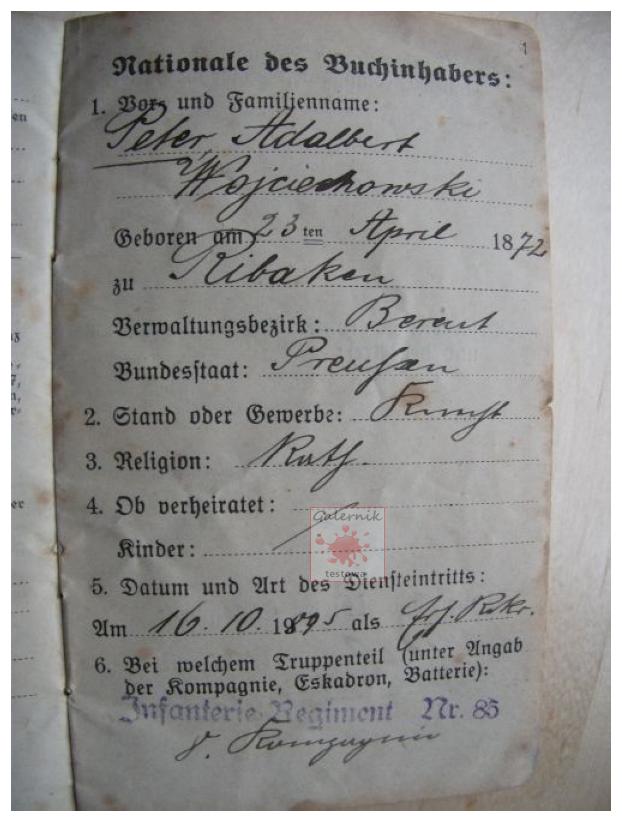 1
Nationale des Buchinhabers:
1. Vor- und Familienname:
Peter Adalbert
Wojciechowski
Geboren am 23 ten April 1872
zu Ribaken
Verwaltungsbezirk: Berent
Bundesstaat: Preußen
2. Stand oder Gewerbe: Knecht
3. Religion: Kath.
4. Ob verheiratet:
Kinder:
Galernik
testowa
5. Datum und Art des Diensteintritts:
Am 16. 10. 1895 als Ers. Rekr.
6. Bei welchem Truppenteil (unter Angab
der Kompagnie, Eskadron, Batterie):
Infanterie-Regiment Nr. 85
Kompagnie